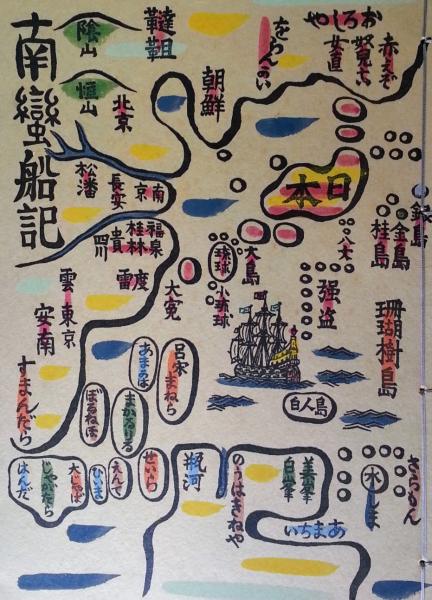 南蠻船記
陰山
恒山
韃靼
北京
朝鮮
をらんかい
おろしや
女直
赤えぞ
日本
銀島
金島
桂島
松潘
長安
南京
福泉
桂林
貴
四川
雲
東京
安南
大寃
琉球
小琉球
大島
八丈
強盗
珊瑚樹島
白人島
すまんだら
呂宋
まねら
ぼるねお
まかるりる
はんだ
じやがたら
大じやば
えんで
せいらむ
瓶河
のうばぎねや
美峯
白峯
あまちい
水
しま
さらもん